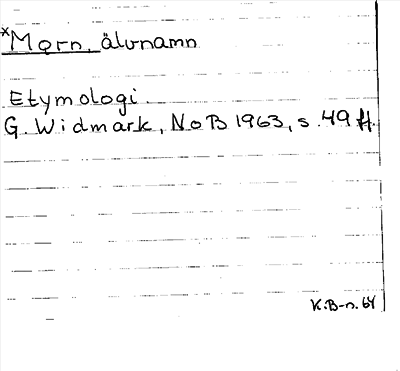 *Morn, älvnamn
Etymologi.
G. Widmark, NoB 1963, s. 49 ff.
K.B-n. 64